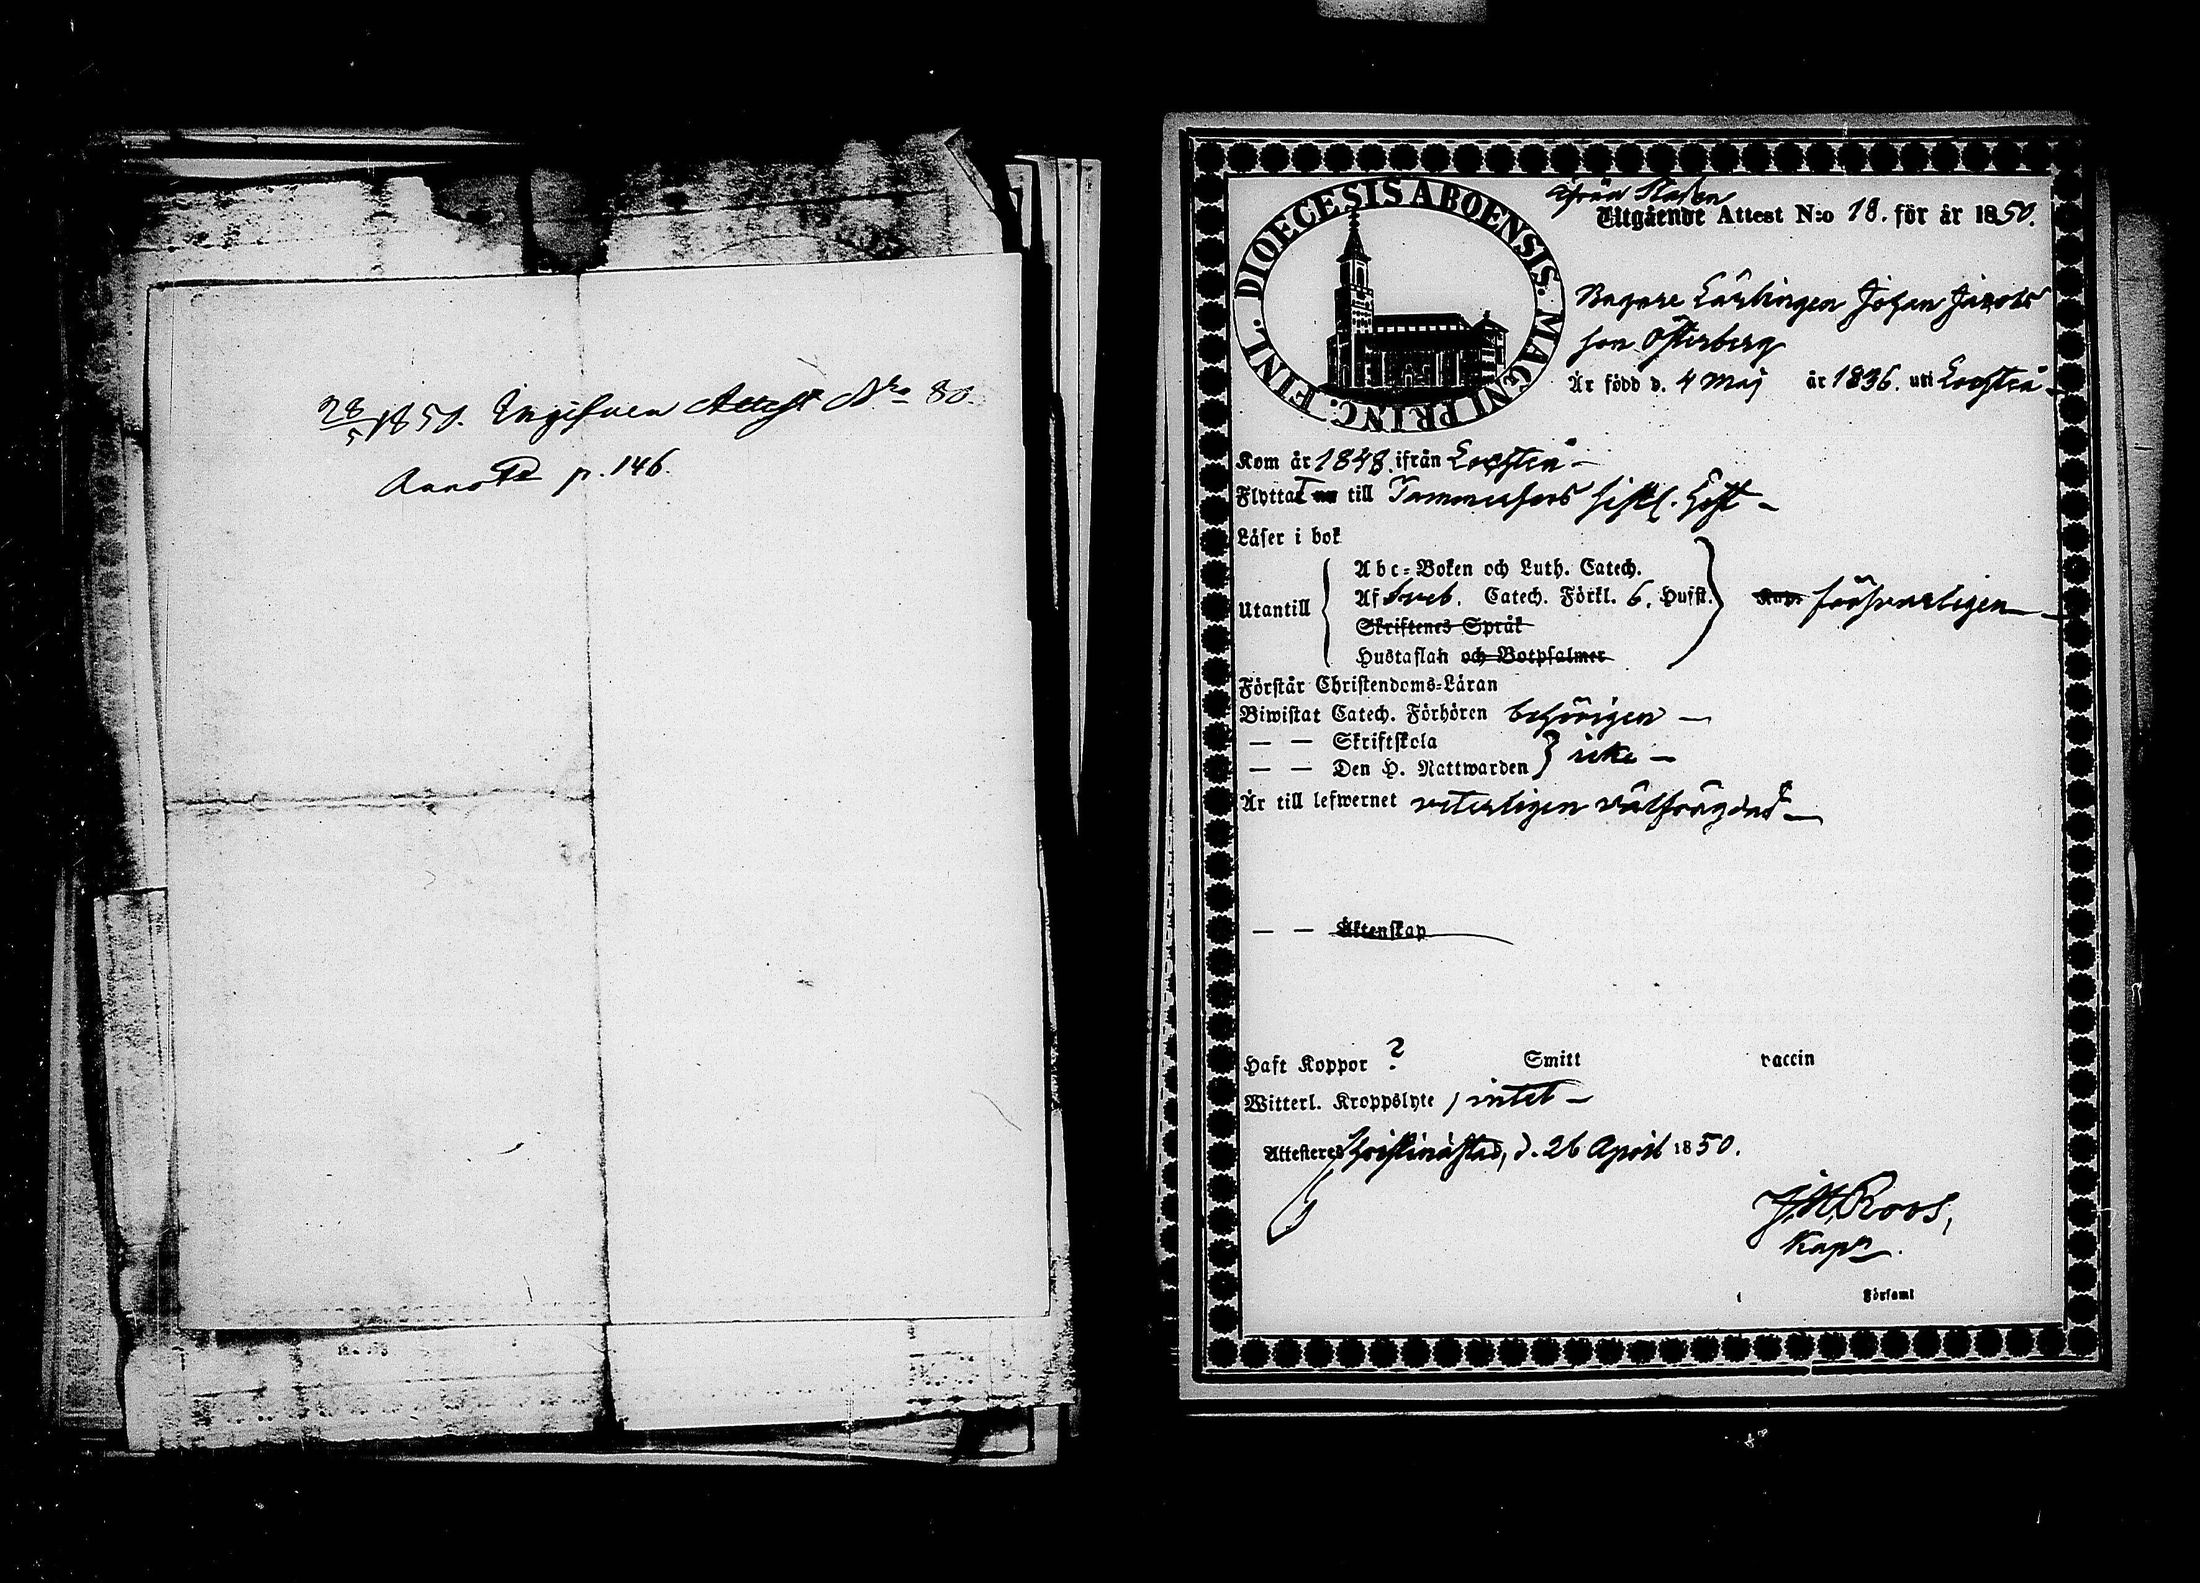 28/5 1850. Ingifven Attest No 80.
Annot p. 146.
DIOECESIS ABOENSIS. MAGNI PRINC. FINL.
ifrån Staden
Utgående Attest N:o 18. för år 1850.
Bagare Lärlingen Johan Jacobs
son Österberg
Är född d. 4 Maj år 1836. uti Lochteå
Kom år 1848. ifrån Lochteå
Flyttat till Tammerfors
Läser i bok
Abc-Boken och Luth. Catech.
Utantill Af Sveb. Catech. Förkl. 6. Hufst. försvarligen
Skriftenes Språk
Hustaflan och Botpsalmer
Förstår Christendoms-Läran
Biwistat Catech. Förhören behörigen
— — Skriftskola
— — Den H. Nattwarden } icke
Är till lefwernet veterligen välfrägdad
— — Äktenskap
Haft Koppor ? Smitt vaccin
Witterl. Kroppslyte, intet
Attesteres Christinästad, d. 26 April 1850.
Roos,
Kapn.
Församl